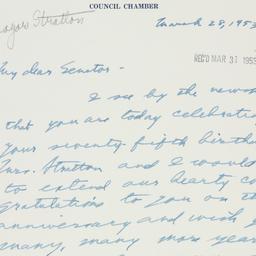 COUNCIL CHAMBER
March 28, 1953
Stratton
REC'D MAR 31 1953
My dear Senator -
I see by the news
that you are today celebrati
your seventy-fifth birth
Mrs. Stratton and I would
to extend our hearty co
gratulations to you on th
anniversary and wish y
many, many more year